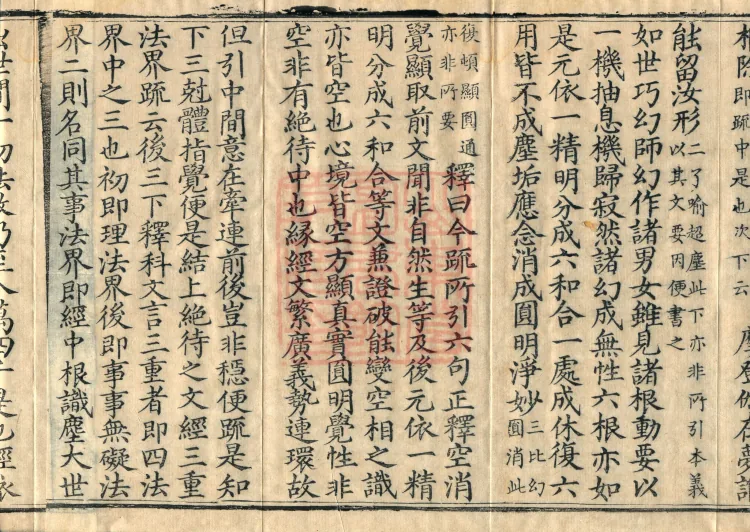 相陰即疏中是也次下云 摩登伽在夢誰
能留汝形二了喻超塵此下亦非所引本義以其文要因便書之
如世巧幻師幻作諸男女雖見諸根動要以
一機抽息機歸寂然諸幻成無性六根亦如
是元依一精明分成六和合一處成休復六
用皆不成塵垢應念消成圓明淨妙三比幻圓消此
復頓顯圓通亦非所要釋曰今疏所引六句正釋空消
覺顯取前文聞非自然生等及後元依一精
明分成六和合等文兼證破能變空相之識
亦皆空也心境皆空方顯真實圓明覺性非
空非有絕待中也緣經文繁廣義勢連環故
但引中間意在牽連前後豈非穩便疏是知
下三尅體指覺便是結上絕待之文經三重
法界疏云後三下釋科文言三重者即四法
界中之三也初即理法界後即事事無礙法
界二則名同其事法界即經中根識塵大世
出世間一切法數乃至八萬四千是也經依